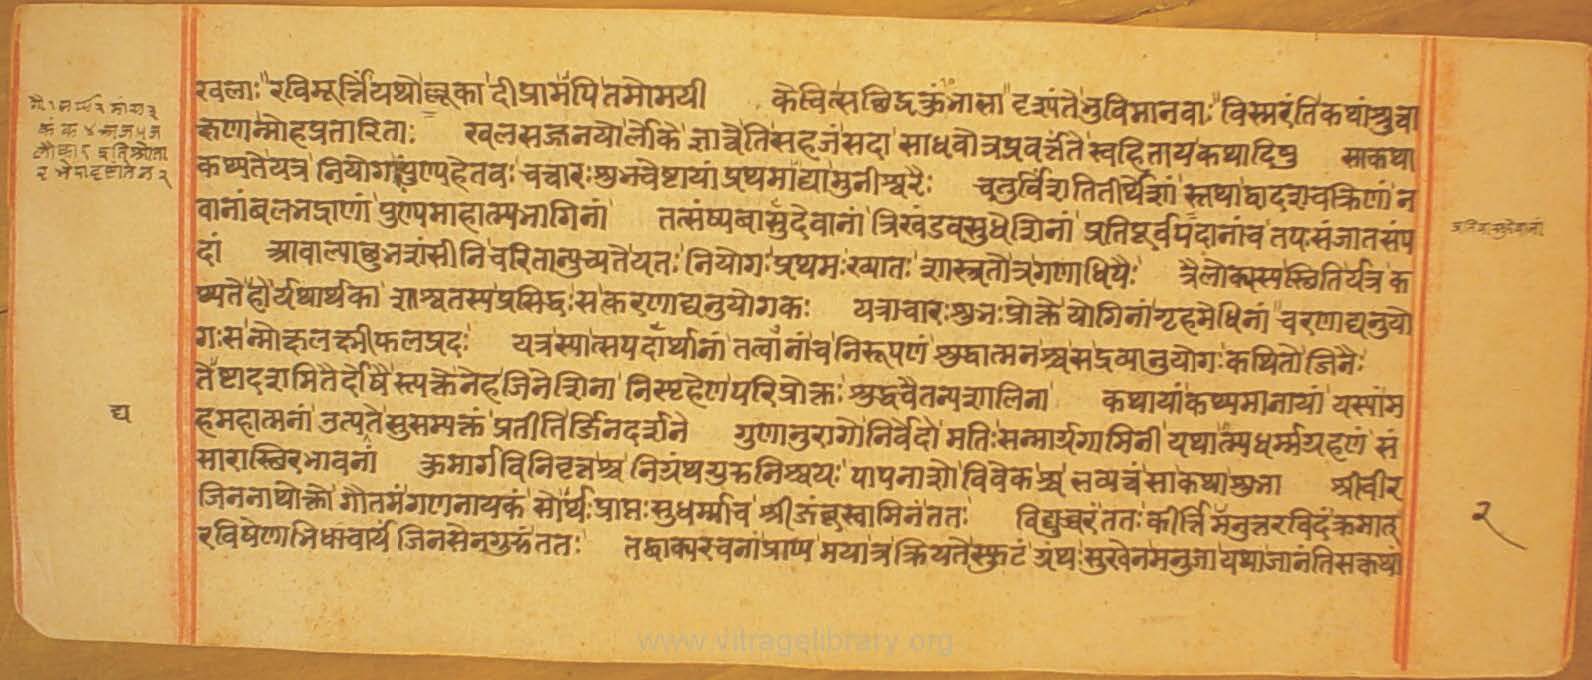 खलाः रविमूर्त्तिं यथोलूका दीप्रामपि तमोमयी केचित्सछिद्रकुंभाभा दृश्यंते भुवि मानवाः विस्मरंति कथां श्रुत्वा
क्षणान्मोहप्रतारिताः खलसज्जनयोर्लोके ज्ञात्वैति सहजं सदा साधवोत्र प्रवर्त्तंते स्वहिताय कथादिषु सा कथा
कथ्यते यत्र नियोगाः पुण्यहेतवः चत्वारः शुभचेष्टायां प्रथमाद्या मुनीश्वरैः चतुर्विंशतितीर्थेशां स्तथा द्वादशचक्रिणां न
वानां बलभद्राणां पुण्यमाहात्म्यभागिनां तत्संख्यवासुदेवानां त्रिखंडवसुधेशिनां प्रतिपूर्वपदानां च तपःसंजातसंप
दां आबाल्याछुभशंसीनि चरितान्युच्यते यतः नियोगः प्रथमः ख्यातः शास्त्रतोत्र गणाधिपैः त्रैलोक्यस्य स्थितिर्यत्र क
थ्यते हो यथार्थका शाश्वतस्य प्रसिद्धः स करणाद्यनुयोगकः यत्राचारः शुभः प्रोक्तो योगिनां गृहमेधिनां चरणाद्यनुयो
गः स मोक्षलक्ष्मीफलप्रदः यत्र स्यात्सपदार्थानां तत्वानां च निरूपणं शुद्धात्मनश्च स द्रव्यानुयोगः कथितो जिनैः
तेष्टादशमितैर्दोषैस्त्यक्तेनेह जिनेशिना निस्पृहेण परिप्रोक्तः शुद्धचैतन्यशालिना कथायां कथ्यमानायां यस्यां म
ह महात्मनां उत्पद्यते सुसम्यक्तं प्रतीतिर्जिनदर्शने गुणानुरागो निर्वेदो मतिः सन्मार्गगामिनी यथात्म्यधर्म्मग्रहणं सं
सारास्थिरभावनां कुमार्गविनिवृत्तश्च निर्ग्रंथगुरुनिश्चयः पापनाशो विवेकश्च लभ्यत्वं सा कथा शुभा श्रीवीर
जिननाथोक्तो गौतमं गणनायकं सोर्थः प्राप्तः सुधर्म्मं च श्रीजंबूस्वामिनं ततः विद्युच्चरं ततः कीर्त्तिमनुत्तरविदं क्रमात्
रविषेणाभिधाचार्यं जिनसेनगुरुं ततः तद्वाक्यरचनां प्राप्य मयात्र क्रियते स्फुटं ग्रंथः सुखेन मनुजा यथा जानंति सकथां
द्य
प्रतिवासुदेवानां
२
www.vitragelibrary.org